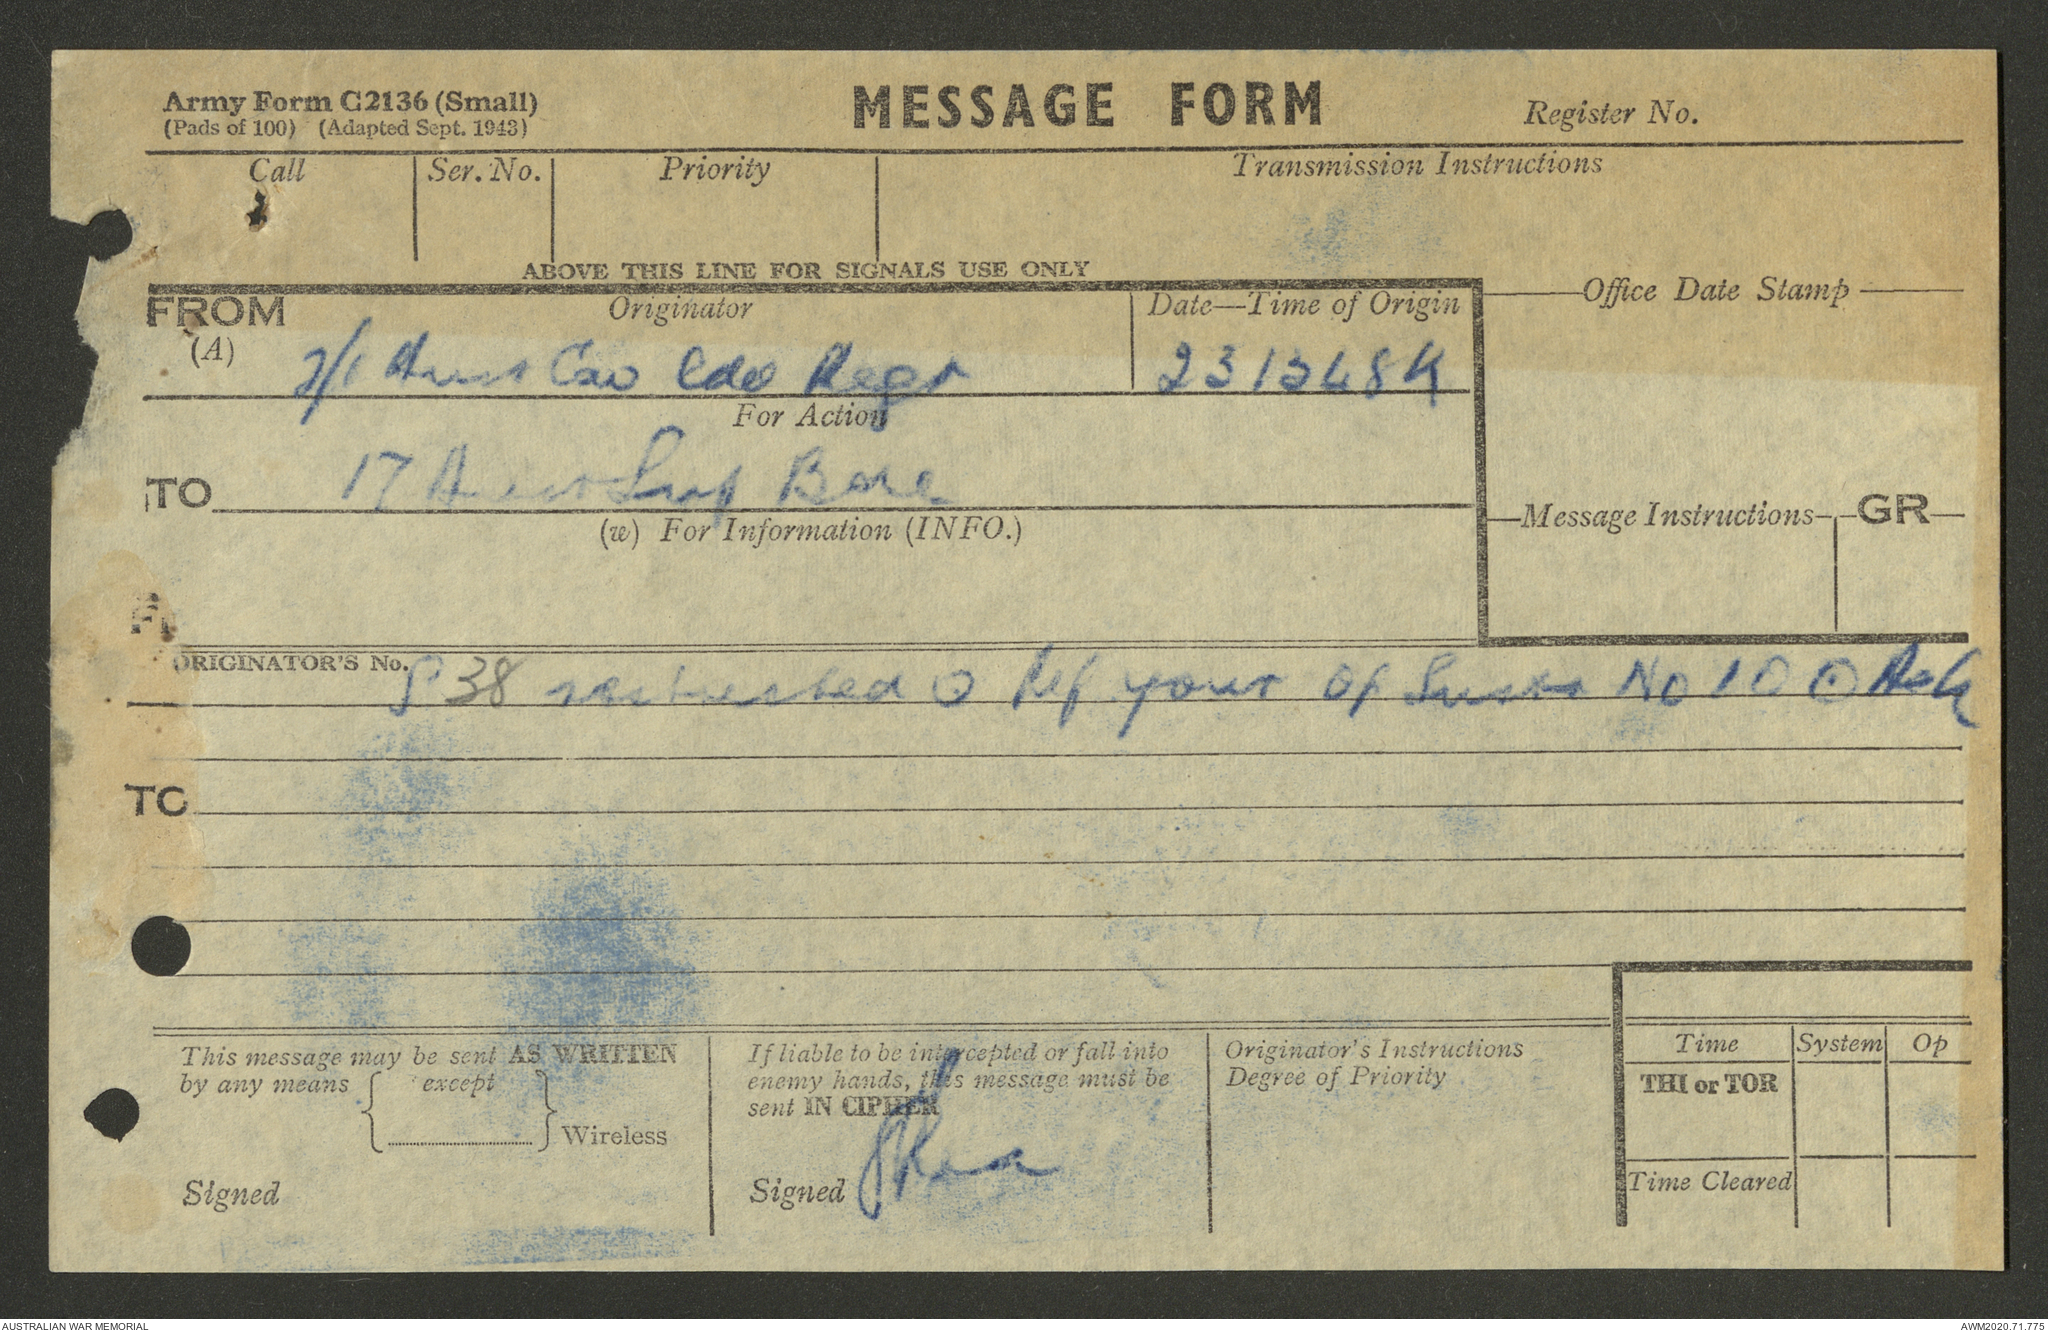 Army Form C2136 (Small)
(Pads of 100) (Adapted Sept. 1943)
MESSAGE FORM
Register No.
Call
Ser. No.
Priority
Transmission Instructions
ABOVE THIS LINE FOR SIGNALS USE ONLY
FROM
(A)
Originator
Date—Time of Origin
Office Date Stamp
2/1 Aust Cav Cdo Regt
231348K
For Action
TO
17 Aust Sup Base
(w) For Information (INFO.)
Message Instructions
GR
ORIGINATOR'S No.
S 38 restricted ⊙ Ref your Op Instn No 10 ⊙ Ack
TO
This message may be sent AS WRITTEN
by any means
except
Wireless
Signed
If liable to be intercepted or fall into
enemy hands, this message must be
sent IN CIPHER
Signed
Originator's Instructions
Degree of Priority
Time
System
Op
THI or TOR
Time Cleared
AUSTRALIAN WAR MEMORIAL
AWM2020.71.775